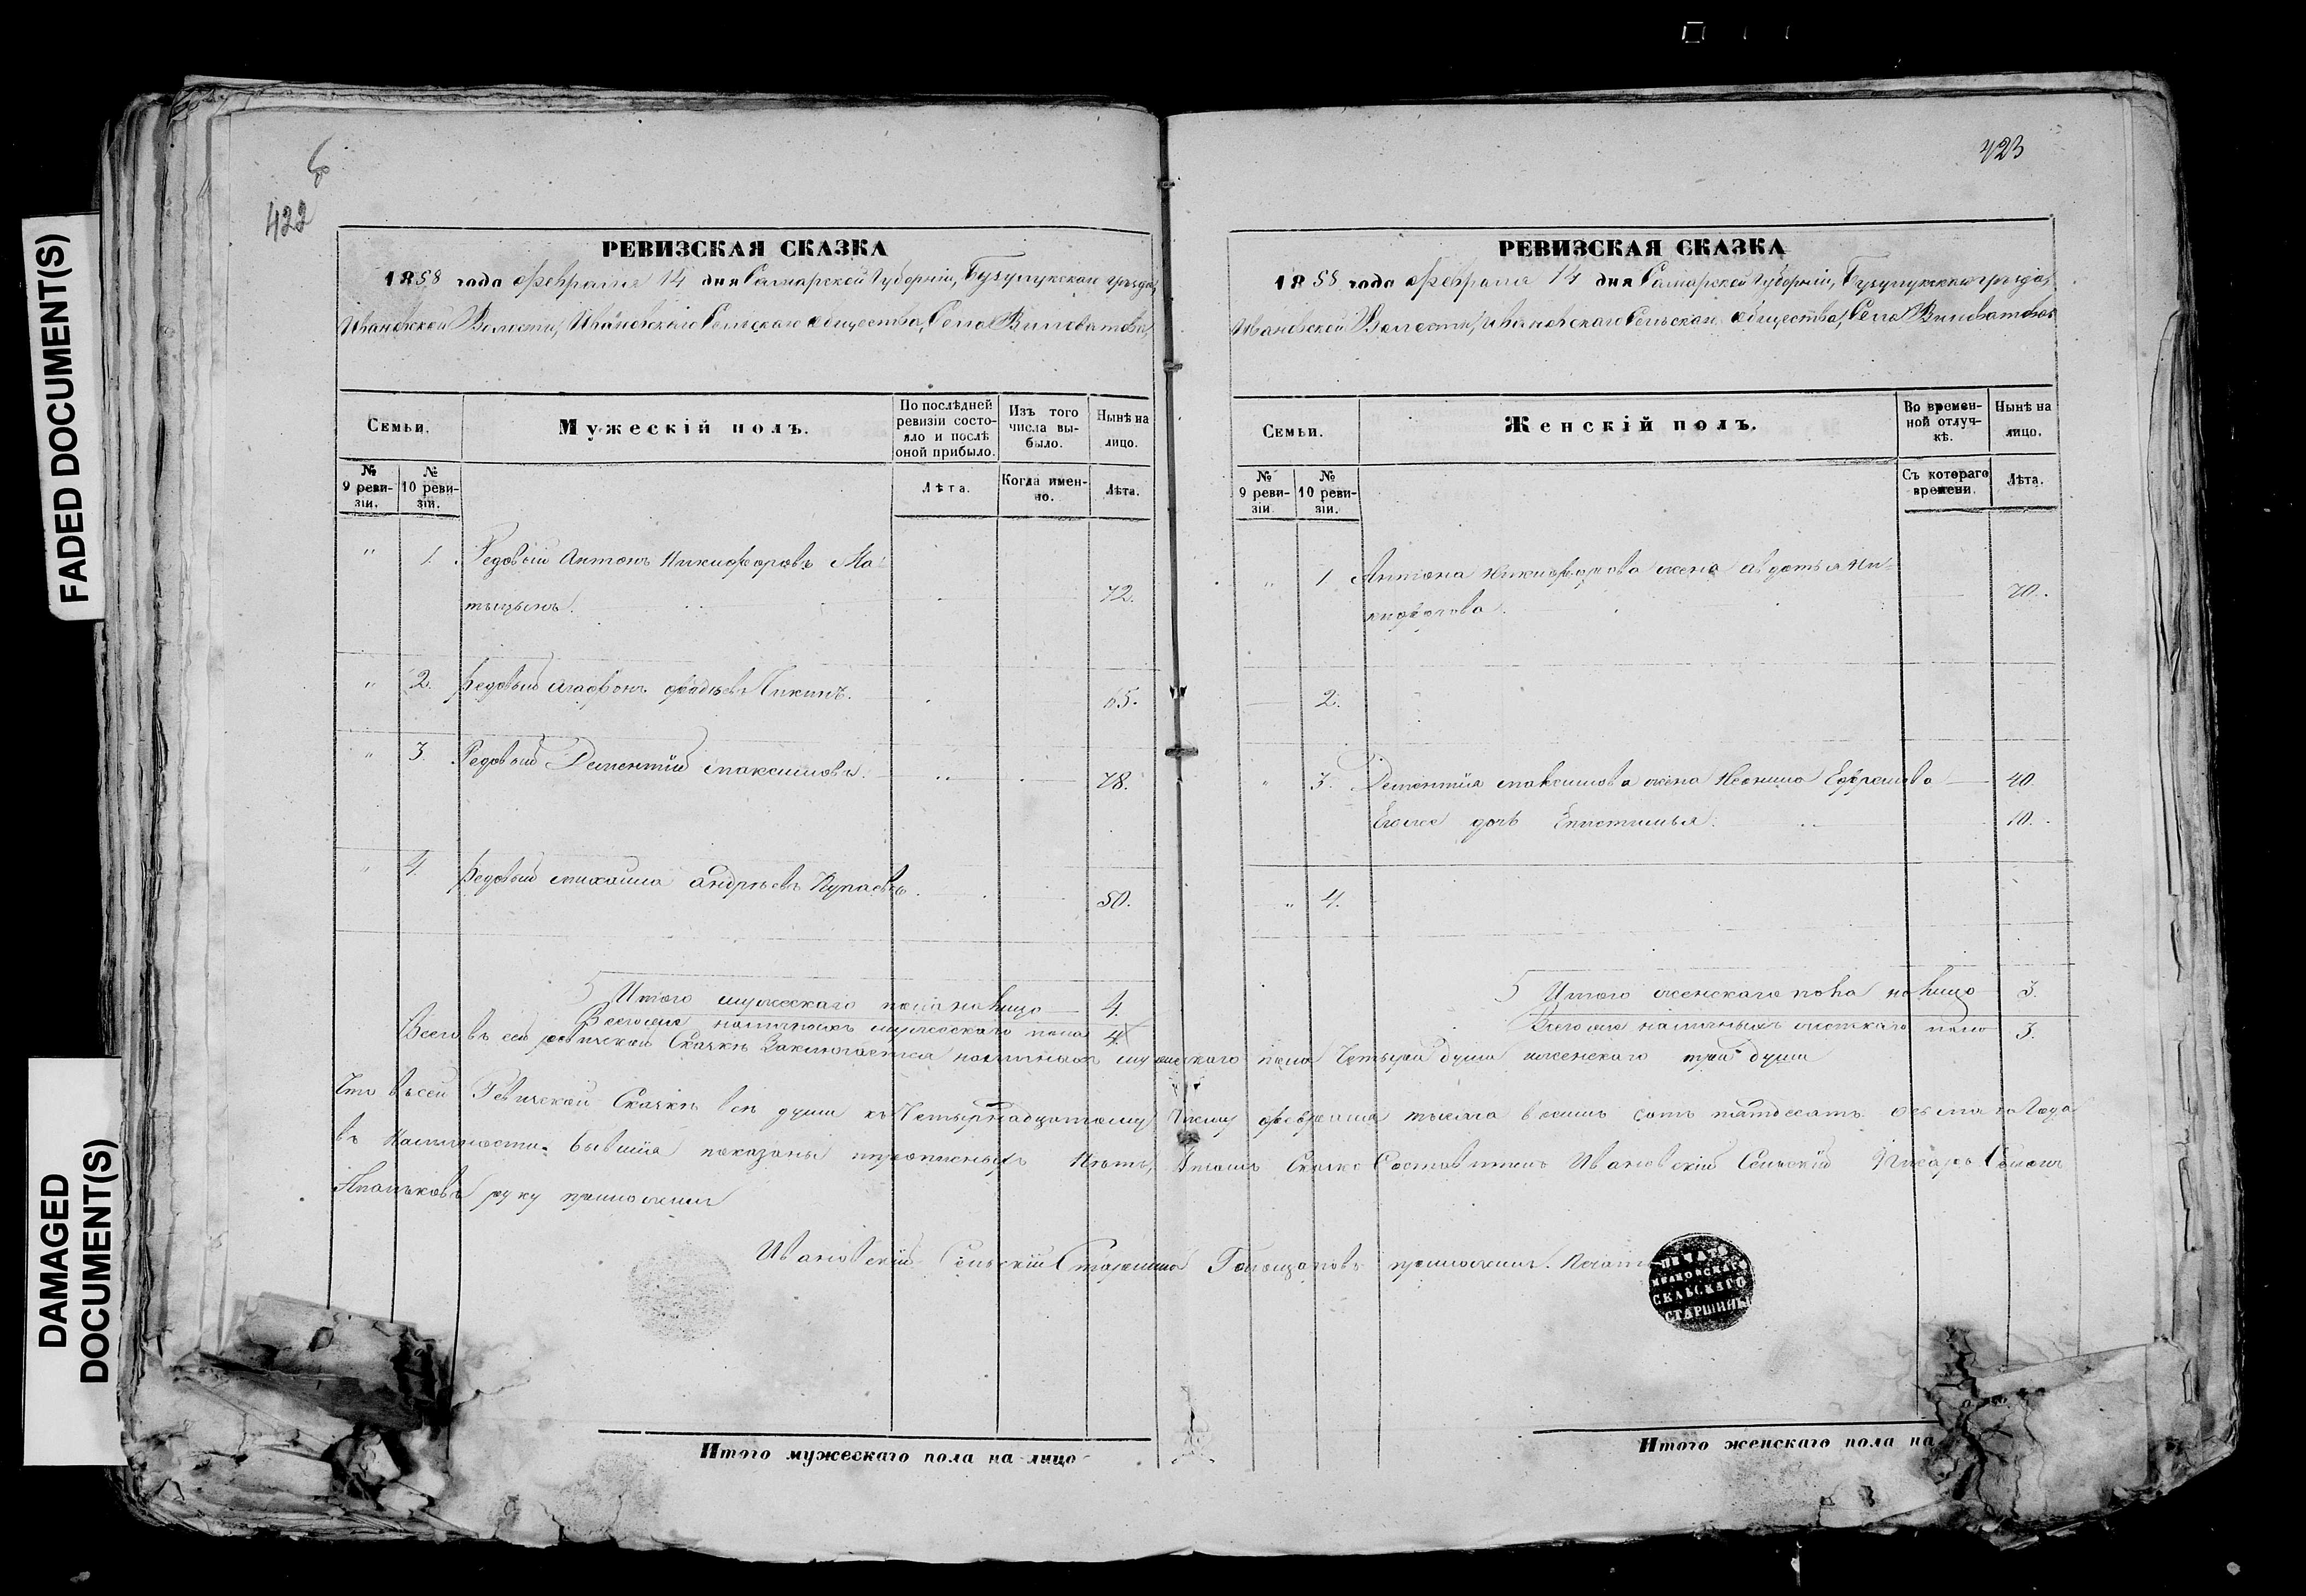 FADED DOCUMENT(S)
DAMAGED
DOCUMENT(S)
6
422
РЕВИЗСКАЯ СКАЗКА
1858 года февраля 14 дня Самарской Губерніи, Бузулукскаго уѣзда,
Ивановской Волости, Ивановскаго Сельскаго общества, Села Виловатова,
Семьи.
Мужескій полъ.
По послѣдней ревизіи состояло и послѣ оной прибыло.
Изъ того числа выбыло.
Нынѣ на лицо.
№ 9 ревизіи.
№ 10 ревизіи.
Лѣта.
Когда именно.
Лѣта.
" 1. Редовый Антонъ Никифоровъ Ма-
тыцынъ. 72.
" 2. Редовый Агафонъ Пикинъ. 65.
" 3. Редовый Дементій Максимовъ. 78.
" 4. Редовый Михаила Андрѣевъ 50.
Итого мужескаго пола на лицо 4.
Всего наличныхъ мужескаго пола 4.
423
РЕВИЗСКАЯ СКАЗКА
1858 года февраля 14 дня Самарской Губерніи, Бузулукскаго уѣзда,
Ивановской Волости, Ивановскаго Сельскаго общества, Села Виловатова
Семьи.
Женскій полъ.
Во временной отлучкѣ.
Нынѣ на лицо.
№ 9 ревизіи
№ 10 ревизіи.
Съ котораго времени.
Лѣта.
" 1 Антона Никифорова жена Авдотья Ни-
кифорова. 70.
2.
" 3. Дементія Максимова жена Ефремова 40.
Егоже дочь Епистимья. 10.
" 4.
Итого женскаго пола на лицо 3.
наличныхъ женскаго пола 3.
Всего въ сей ревизской Сказкѣ Заключается наличныхъ мужескаго пола Четыри души женскаго три души
Что въ сей Ревизской Сказкѣ всѣ души къ Четырнадцатому Числу февраля тысяча восимь сотъ пятдесятъ осьмаго Года
въ Наличности бывшія показаны прописныхъ Нѣтъ, Сказке Составитель Ивановскій Сельскій Писарь
руку приложилъ
Ивановскій Сельскій Старшина приложилъ. Печать
ПЕЧАТЬ
ИВАНОВСКАГО
СЕЛЬСКАГО
СТАРШИНЫ
Итого мужескаго пола на лицо
Итого женскаго пола на